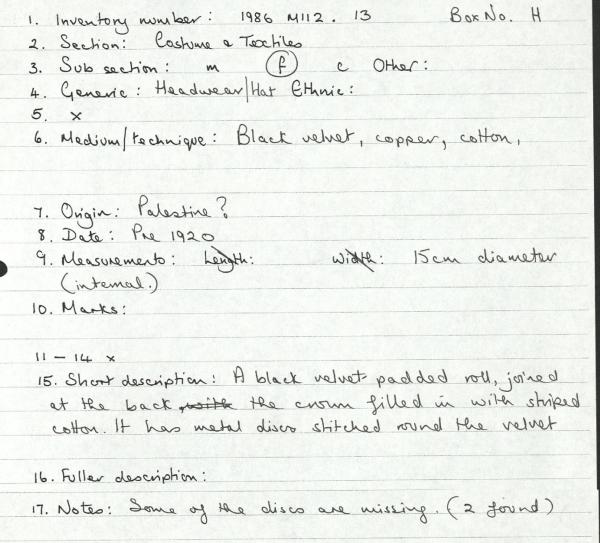 1. Inventory number: 1986 M112.13 Box No. H
2. Section: Costume & Textiles
3. Sub section: m f c Other:
4. Generic: Headwear/Hat Ethnic:
5. x
6. Medium/technique: Black velvet, copper, cotton,
7. Origin: Palestine?
8. Date: Pre 1920
9. Measurements: Length: Width: 15cm diameter
(internal.)
10. Marks:
11 - 14 x
15. Short description: A black velvet padded roll, joined
at the back with the crown filled in with striped
cotton. It has metal discs stitched round the velvet
16. Fuller description:
17. Notes: Some of the discs are missing. (2 found)